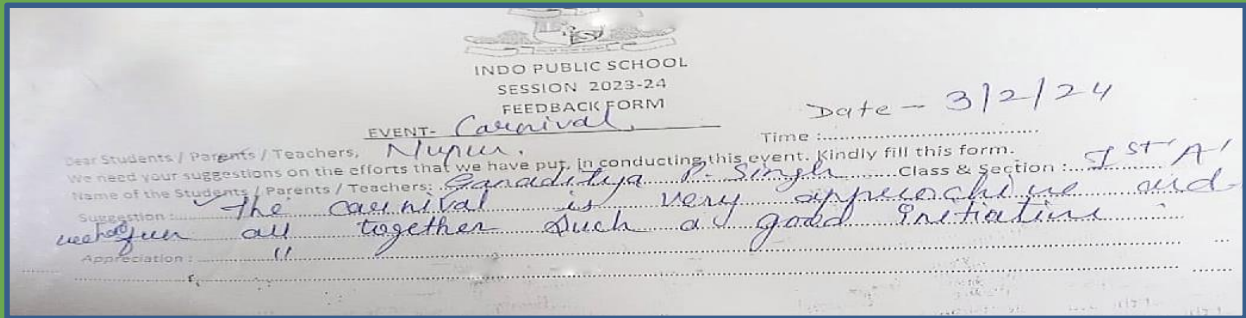 INDO PUBLIC SCHOOL
SESSION 2023-24
FEEDBACK FORM
Date - 3/2/24
EVENT- Carnival
Time :
Dear Students / Parents / Teachers, Nupur.
We need your suggestions on the efforts that we have put, in conducting this event. Kindly fill this form.
Name of the Students / Parents / Teachers: P. Singh Class & Section : Ist 'A'
Suggestion : The carnival is very and
we had fun all together Such a good initiative
Appreciation : "